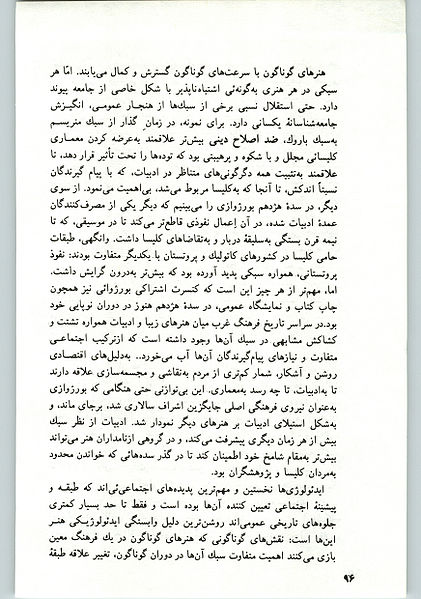 هنرهای گوناگون با سرعت‌های گوناگون گسترش و کمال می‌یابند. امّا هر
سبکی در هر هنری به‌گونه‌ئی اشتباه‌ناپذیر با شکل خاصی از جامعه پیوند
دارد. حتی استقلال نسبی برخی از سبک‌ها از هنجار عمومی، انگیزش
جامعه‌شناسانهٔ یکسانی دارد. برای نمونه، در زمان گذار از سبک منریسم
به‌سبک باروك، ضد اصلاح دینی بیش‌تر علاقمند به‌عرضه کردن معماری
کلیسائی مجلل و با شکوه و پرهیبتی بود که توده‌ها را تحت تأثیر قرار دهد، تا
علاقمند به‌تثبیت همه دگرگونی‌های متناظر در ادبیات، که با پیام گیرندگان
نسبتاً اندکش، تا آنجا که به‌کلیسا مربوط می‌شد، بی‌اهمیت می‌نمود. از سوی
دیگر، در سدهٔ هژدهم بورژوازی را می‌بینیم که دیگر یکی از مصرف‌کنندگان
عمدهٔ ادبیات شده، در آن اِعمال نفوذی قاطع‌تر می‌کند تا در موسیقی، که تا
نیمه قرن بستگی به‌سلیقهٔ دربار و به‌تقاضاهای کلیسا داشت. وانگهی، طبقات
حامی کلیسا در کشورهای کاتولیك و پروتستان با یکدیگر متفاوت بودند: نفوذ
پروتستانی، همواره سبکی پدید آورده بود که بیش‌تر به‌درون گرایش داشت.
اما، مهم‌تر از هر چیز این است که کنسرت اشتراکی بورژوائی نیز همچون
چاپ کتاب و نمایشگاه عمومی، در سدهٔ هژدهم هنوز در دوران نوپایی خود
بود.در سراسر تاریخ فرهنگ غرب میان هنرهای زیبا و ادبیات همواره تشتت و
کشاکش مشابهی در سبک آن‌ها وجود داشته است که ازترکیب اجتماعـی
متفاوت و نیازهای پیام‌گیرندگان آن‌ها آب می‌خورد.. به‌دلیل‌های اقتصادی
روشن و آشکار، شمار کم‌تری از مردم به‌نقاشی و مجسمه‌سازی علاقه دارند
تا به‌ادبیات، تا چه رسد به‌معماری. این بی‌توازنی حتی هنگامی که بورژوازی
به‌عنوان نیروی فرهنگی اصلی جایگزین اشراف سالاری شد، برجای ماند، و
به‌شکل استیلای ادبیات بر هنرهای دیگر نمودار شد. ادبیات از نظر سبک
بیش از هر زمان دیگری پیشرفت می‌کند، و در گروهی ازنامداران هنر می‌تواند
بیش‌تر به‌مقام شامخ خود اطمینان کند تا در گذر سده‌هائی که خواندن محدود
به‌مردان کلیسا و پژوهشگران بود.
ایدئولوژی‌ها نخستین و مهم‌ترین پدیده‌های اجتماعی‌ئی‌اند که طبقـه و
پیشینهٔ اجتماعی تعیین کننده آن‌ها بوده است و فقط تا حد بسیار کمتری
جلوه‌های تاریخی عمومی‌اند روشن‌ترین دلیل وابستگی ایدئولوژیـکی هنـر
این‌ها است: نقش‌های گوناگونی که هنرهای گوناگون در یك فرهنگ معین
بازی می‌کنند اهمیت متفاوت سبك آن‌ها در دوران گوناگون، تغییر علاقه طبقهٔ
۹۶